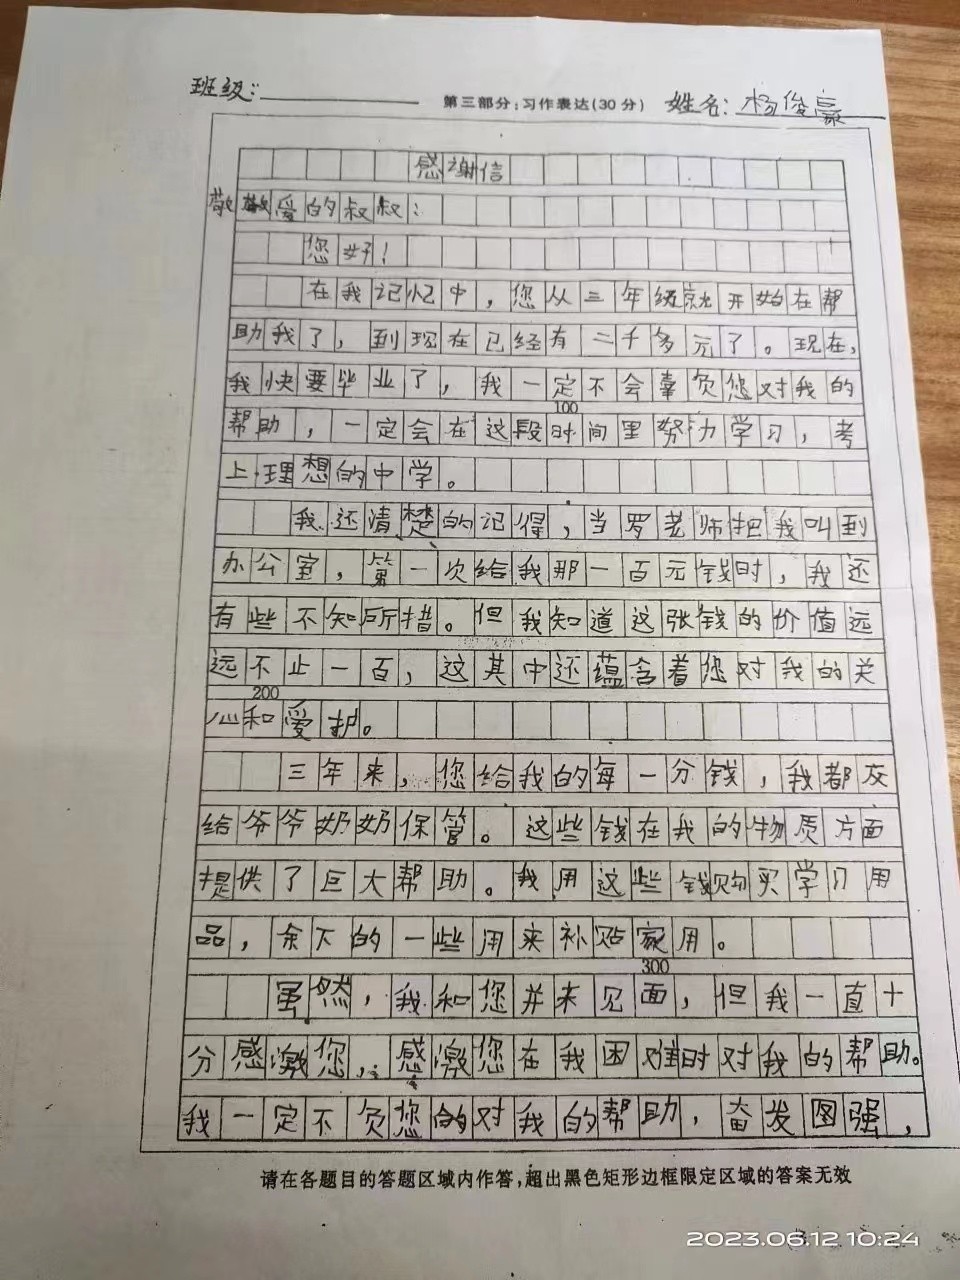 班级:
第三部分:习作表达(30分)
姓名:杨俊豪
感谢信
敬爱的叔叔:
您好!
在我记忆中,您从三年级就开始在帮
助我了,到现在已经有二千多元了。现在,
我快要毕业了,我一定不会辜负您对我的
100
帮助,一定会在这段时间里努力学习,考
上理想的中学。
我还清楚的记得,当罗老师把我叫到
办公室,第一次给我那一百元钱时,我还
有些不知所措。但我知道这张钱的价值远
远不止一百,这其中还蕴含着您对我的关
200
心和爱护。
三年来,您给我的每一分钱,我都交
给爷爷奶奶保管。这些钱在我的物质方面
提供了巨大帮助。我用这些钱购买学习用
品,余下的一些用来补贴家用。
300
虽然,我和您并未见面,但我一直十
分感激您,感激您在我困难时对我的帮助。
我一定不负您的对我的帮助,奋发图强,
请在各题目的答题区域内作答,超出黑色矩形边框限定区域的答案无效
2023.06.12 10:24